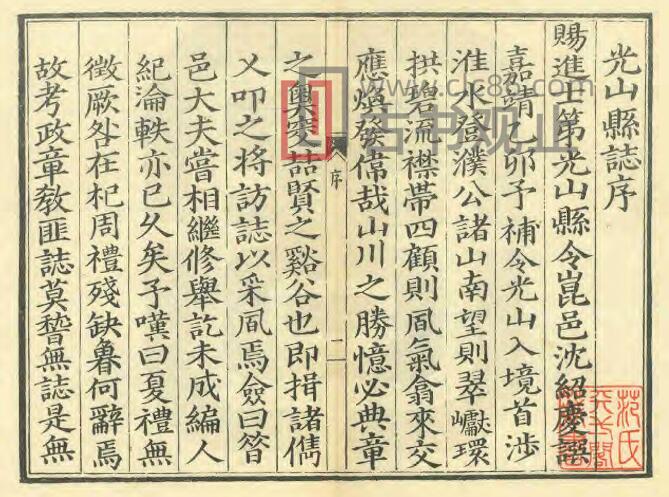 光山縣誌序
賜進士第光山縣令崑邑沈紹慶譔
嘉靖乙卯予補令光山入境首涉
淮水登濮公諸山南望則翠巘環
拱碧流襟帶四顧則風氣翕來交
應煥發偉哉山川之勝憶必典章
序
之奧喆賢之谿谷也即揖諸儁
乂叩之將訪誌以采風焉僉曰昝
邑大夫嘗相繼修舉訖未成編人
紀淪軼亦已久矣予嘆曰夏禮無
徵厥咎在杞周禮殘缺魯何辭焉
故考政章教匪誌莫無誌是無
范氏
天一閣